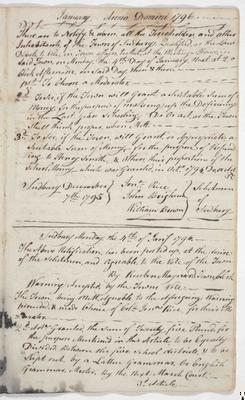 January Anno Domini 1796.
These are to Notify & warn all the Freeholders and other
Inhabitants of the Town of Sudbury, Qualified as the Law
Directs to Vote in Town Affairs to Meet at the Meeting House in
said Town on Monday the 4th Day of January, that at 2
Clock Afternoon, on Said Day, then & there
1st To Chose a Moderator
2d To see, if the Town will Grant a Suitable Sum of
Money, for the purpose of making up the Deficiency
in the Last Year Schooling, Do or act as the Town
shall think proper, when Met
3d To see, if the Town, will Grant or appropriate a
Suitable Sum of Money, for the purpose of
to Smith, & others their proportion of the
School Money, which was Granted, in Octr 1794
Sudbury December
7th 1795
Rice
John Brigham
William
Selectmen
of
Sudbury
Sudbury Monday, the 4th of Janry 1796.
The above Notification has been posted up at the
of the Selectmen, and Agreeable to the Vote of the Town
By Reuben Maynard Town Clerk
Warning Accepted by the Town Vote
The Town being Met Agreeable to the Warning
& made Choice of Rice for their
Moderator
2d Art. Granted the Sum of Twenty five Pounds for
the purpose Mentioned in this Article to be Equally
Divided between the five School districts, & to be
kept out by a Latten Grammar, Or English
Grammar Master, by the Next March Court.
3d Article